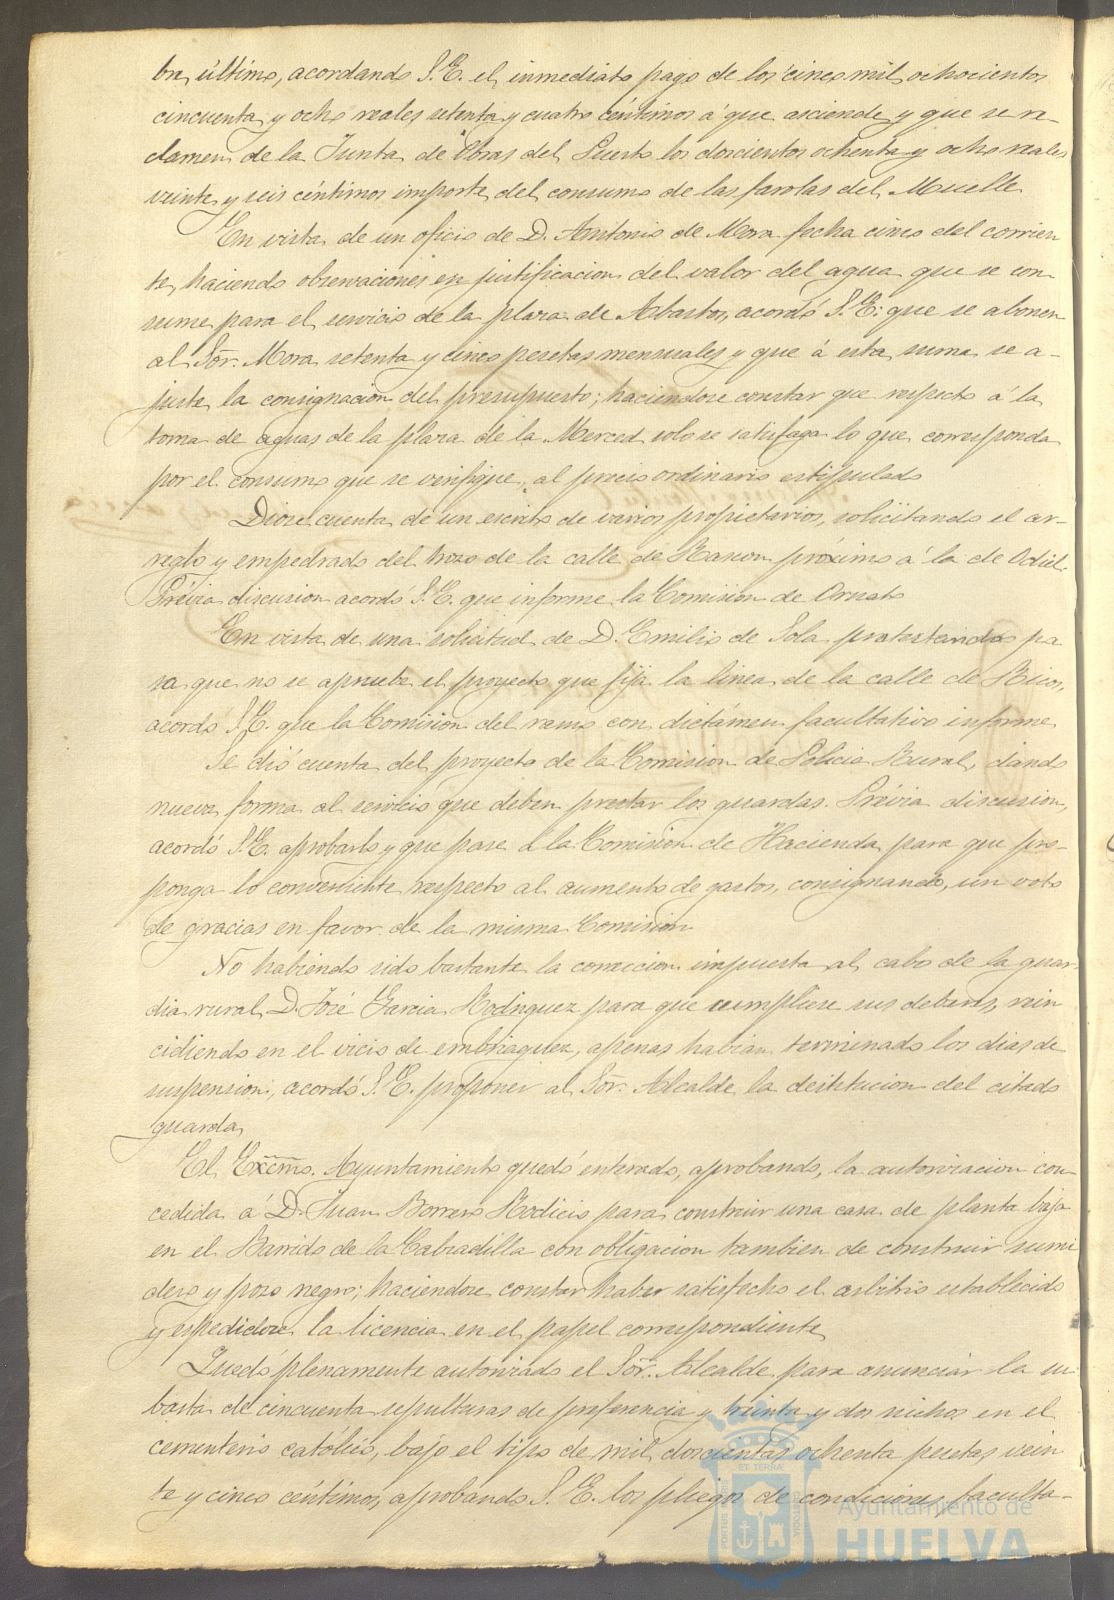 bre último, acordando S.E. el inmediato pago de los cinco mil ochocientos
cincuenta y ocho reales setenta y cuatro céntimos á que asciende y que se re-
clamen de la Junta de Obras del Puerto los doscientos ochenta y ocho reales
veinte y seis céntimos importe del consumo de las farolas del Muelle.
En vista de un oficio de D. Antonio de Mora fecha cinco del corrien
te, haciendo observaciones en justificacion del valor del agua que se con-
sume para el servicio de la plaza de Abastos, acordó S.E. que se abonen
al Sor. Mora setenta y cinco pesetas mensuales y que á esta suma se a-
juste la consignacion del presupuesto; haciendose constar que respecto á la
toma de aguas de la plaza de la Merced solo se satisfaga lo que corresponda
por el consumo que se verifique, al precio ordinario estipulado
Diose cuenta de un escrito de varios propietarios, solicitando el ar-
reglo y empedrado del trozo de la calle de Rascon próximo á la de Odiel.
Prévia discusion acordó S.E. que informe la Comision de Ornato
En vista de una solicitud de D. Emilio de Sola protestando pa
ra que no se apruebe el proyecto que fija la linea de la calle de Ricos,
acordó S.E. que la Comision del ramo con dictámen facultativo informe
Se dió cuenta del proyecto de la Comision de Policia Rural, dando
nueva forma al servicio que deben prestar los guardas. Prévia discusion,
acordó S.E. aprobarlo y que pase á la Comision de Hacienda para que pro-
ponga lo conveniente respecto al aumento de gastos, consignando, un voto
de gracias en favor de la misma Comision
No habiendo sido bastante la correccion impuesta al cabo de la guar
dia rural D. José Garcia Rodriguez para que cumpliese sus deberes, rein
cidiendo en el vicio de embriaguez, apenas habian terminado los dias de
suspension; acordó S.E. proponer al Sor. Alcalde la destitucion del citado
guarda
El Excmo. Ayuntamiento quedó enterado, aprobando, la autorizacion con
cedida á D. Juan Borrero Rodicio para construir una casa de planta baja
en el Barrido de la Cabradilla con obligacion tambien de construir sumi
dero y pozo negro; haciendose constar haber satisfecho el arbitrio establecido
y espedidose la licencia en el papel correspondiente
Quedó plenamente autorizado el Sor. Alcalde para anunciar la su
basta de cincuenta sepulturas de preferencia y treinta y dos nichos en el
cementerio católico, bajo el tipo de mil doscientas ochenta pesetas vein
te y cinco céntimos, aprobando S.E. los pliegos de condiciones faculta-
Ayuntamiento de
HUELVA